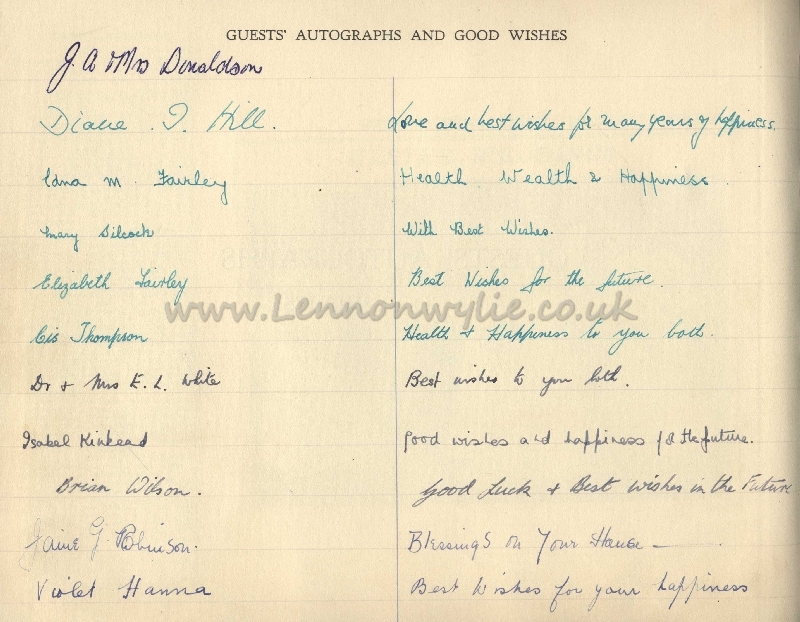 GUESTS' AUTOGRAPHS AND GOOD WISHES
J. A & Mrs Donaldson
Diane . I. Hill. Love and best wishes for many years of happiness.
Edna M. Fairley Health Wealth & Happiness
Mary Silcock With Best Wishes.
Elizabeth Fairley Best Wishes for the future.
www.Lennonwylie.co.uk
Cis Thompson Health & Happiness to you both.
Dr & Mrs E. L. White Best wishes to you both.
Isabel Kinkead Good wishes and happiness for the future.
Brian Wilson. Good Luck & Best wishes in the Future
G. Robinson. Blessings on Your House —
Violet Hanna Best Wishes for your happiness